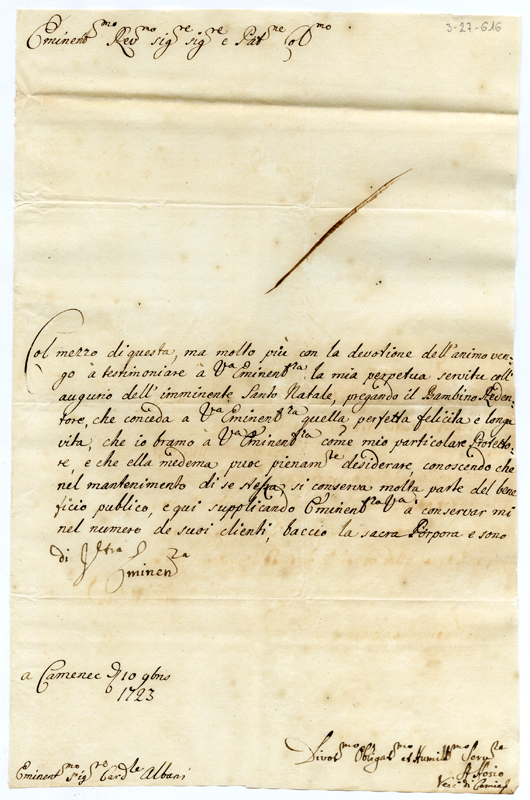 3-27-616
Eminent.mo Rev.mo Sig.re Sig.re e Pat.ne Co.mo
Col mezzo di questa, ma molto più con la devotione dell'animo ven-
go à testimoniare à V.a Eminenz.ra la mia perpetua servitu coll'
augurio dell'imminente Santo Natale, pregando il Bambino Reden-
tore, che conceda à V.a Eminenz.ra quella perfetta felicita e longa
vita, che io bramo à V.a Eminenz.ra come mio particolare Protetto-
re, e che ella medema puoc pienam.te desiderare, conoscendo che
nel mantenimento di se stessa si conserva molta parte del bene
ficio publico, e qui supplicando Eminenz.ra V.a à conservar mi
nel numero de suoi clienti, baccio la sacra Porpora e sono
di
Eminenz.a
a Camenec 10 9bris
1723
Divot.mo Obligat.mo et Humill.mo Serv.re
Eminent.mo Sig.re Card.le Albani